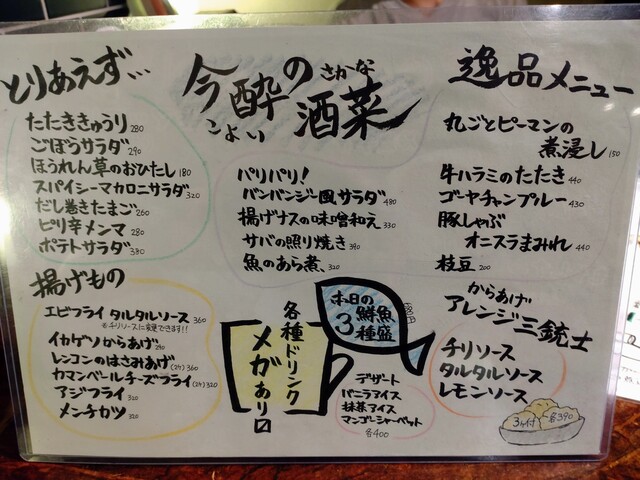 とりあえず…
たたききゅうり 280
ごぼうサラダ 290
ほうれん草のおひたし 180
スパイシーマカロニサラダ 320
だし巻きたまご 260
ピリ辛メンマ 280
ポテトサラダ 380
揚げもの
エビフライ タルタルソース 360
※チリソースに変更できます!!
イカゲソからあげ 290
レンコンのはさみあげ (2ヶ) 360
カマンベールチーズフライ (2ヶ) 320
アジフライ 320
メンチカツ 320
今酔の酒菜
こよい
さかな
パリパリ!
バンバンジー風サラダ 480
揚げナスの味噌和え 330
サバの照り焼き 390
魚のあら煮、320
本日の
鮮魚
3種盛
580円
各種ドリンク
メガあり〼
デザート
バニラアイス
抹茶アイス
マンゴーシャーベット
各400
逸品メニュー
丸ごとピーマンの
煮浸し 150
牛ハラミのたたき 440
ゴーヤチャンプルー 430
豚しゃぶ
オニスラまみれ 440
枝豆 200
からあげ
アレンジ三銃士
チリソース
タルタルソース
レモンソース
3ヶ付
各390